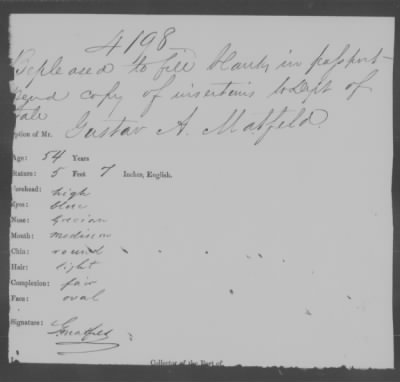 4198
Be pleased to fill blanks in passport
send copy of insertions to Dept of
State
ription of Mr. Gustav A. Matfeld.
Age: 54 Years
Stature: 5 Feet 7 Inches, English.
Forehead: high
Eyes: blue
Nose: Grecian
Mouth: medium
Chin: round
Hair: light
Complexion: fair
Face: oval
Signature: GMatfeld
Collector of the Port of